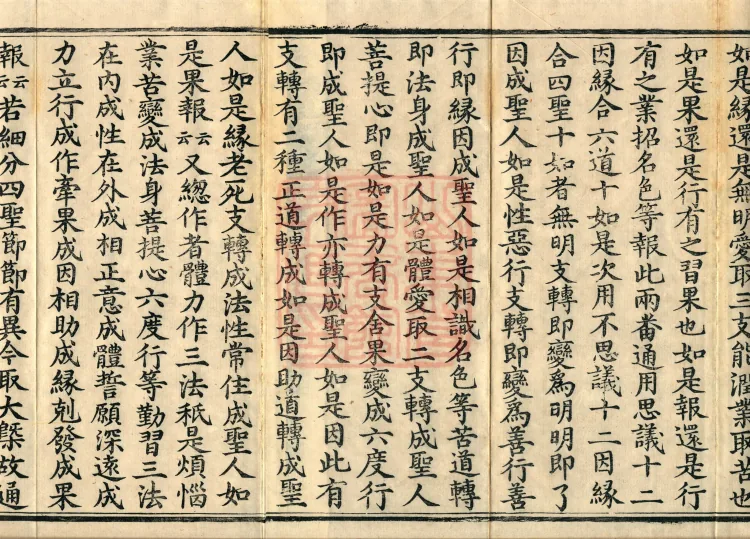 如是緣還是無明愛取三支能潤業取苦也
如是果還是行有之習果也如是報還是行
有之業招名色等報此兩番通用思議十二
因緣合六道十如是次用不思議十二因緣
合四聖十如者無明支轉即變爲明明即了
因成聖人如是性惡行支轉即變爲善行善
行即緣因成聖人如是相識名色等苦道轉
即法身成聖人如是體愛取二支轉成聖人
菩提心即是如是力有支舍果變成六度行
即成聖人如是作亦轉成聖人如是因此有
支轉有二種正道轉成如是因助道轉成聖
人如是緣老死支轉成法性常住成聖人如
是果報云云又緫作者體力作三法秖是煩惱
業苦變成法身菩提心六度行等勤習三法
在內成性在外成相正意成體誓願深遠成
力立行成作牽果成因相助成緣剋發成果
報云云若細分四聖節節有異今取大槩故通